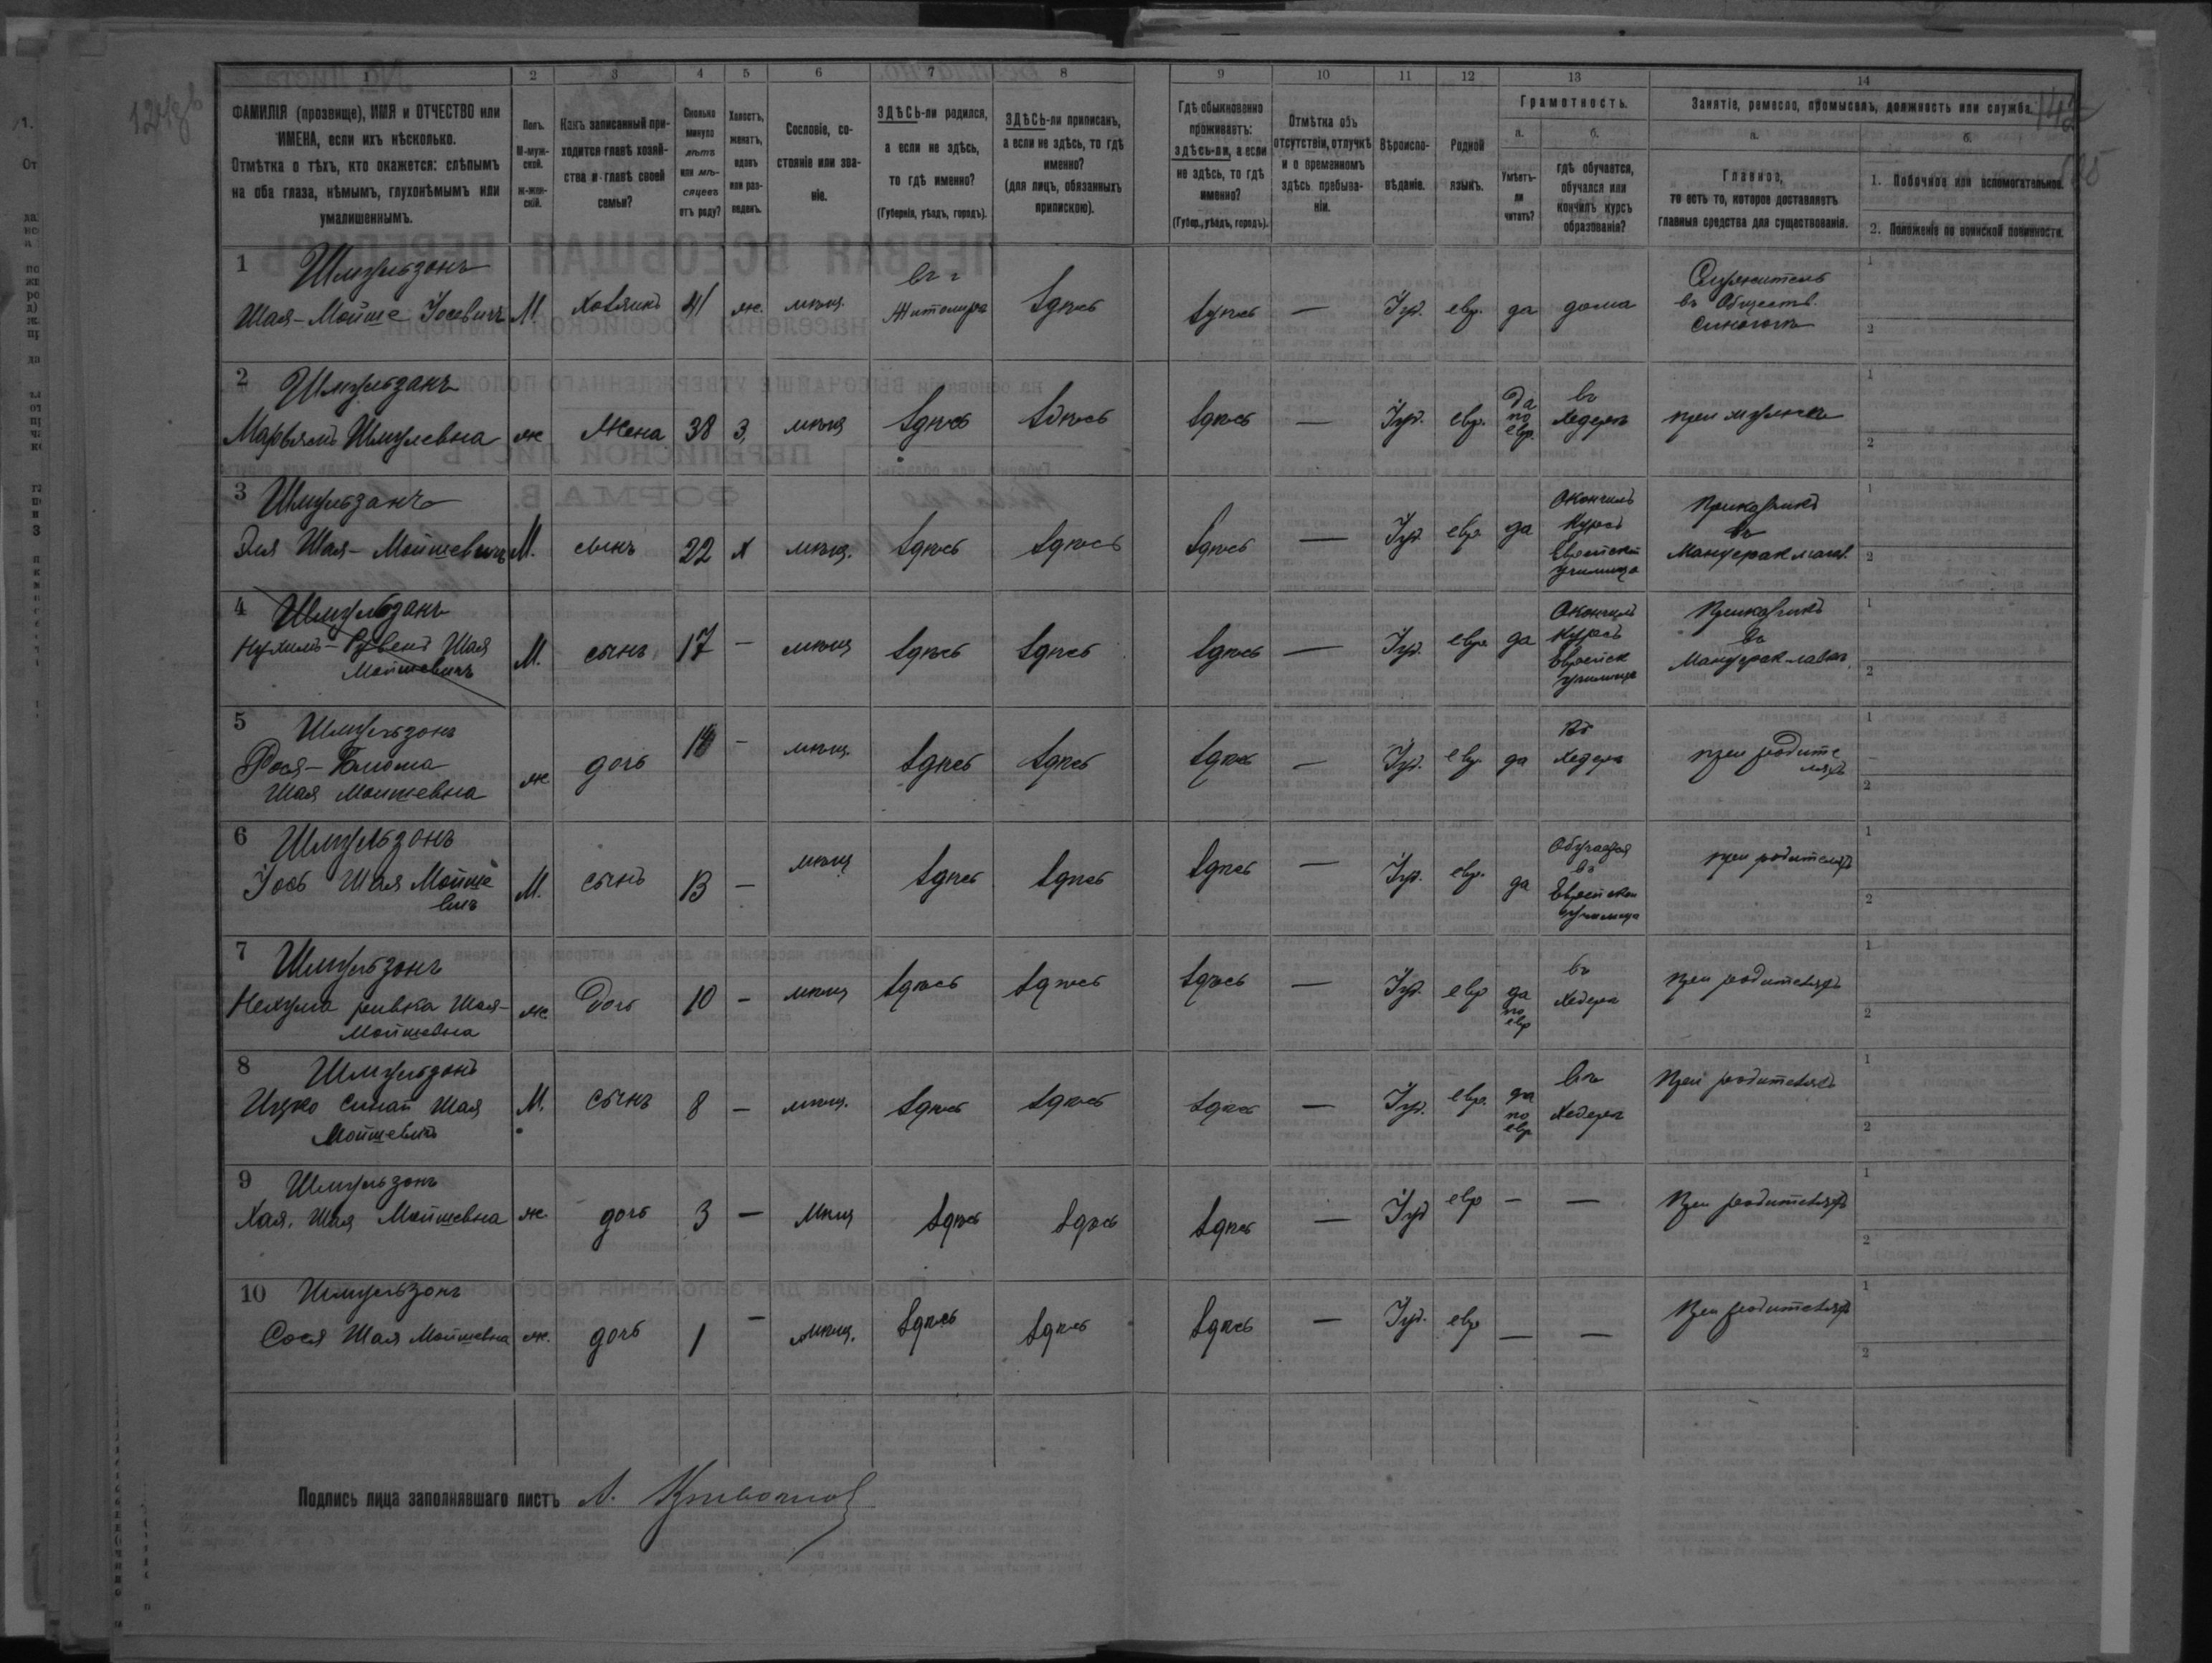 1 2 3 4 5 6 7 8 9 10 11 12 13 14
ФАМИЛІЯ (прозвище), ИМЯ и ОТЧЕСТВО или
ИМЕНА, если ихъ нѣсколько.
Отмѣтка о тѣхъ, кто окажется: слѣпымъ
на оба глаза, нѣмымъ, глухонѣмымъ или
умалишеннымъ.
Полъ.
М-муж-
ской.
ж-жен-
скій.
Какъ записанный при-
ходится главѣ хозяй-
ства и главѣ своей
семьи?
Сколько
минуло
лѣтъ
или мѣ-
сяцевъ
отъ роду?
Холостъ,
женатъ,
вдовъ
или раз-
веденъ.
Сословіе, со-
стояніе или зва-
ніе.
ЗДѢСЬ-ли родился,
а если не здѣсь,
то гдѣ именно?
(Губернія, уѣздъ, городъ).
ЗДѢСЬ-ли приписанъ,
а если не здѣсь, то гдѣ
именно?
(для лицъ, обязанныхъ
припискою).
Гдѣ обыкновенно
проживаетъ:
здѣсь-ли, а если
не здѣсь, то гдѣ
именно?
(Губер., уѣздъ, городъ).
Отмѣтка объ
отсутствіи, отлучкѣ
и о временномъ
здѣсь пребыва-
ніи.
Вѣроиспо-
вѣданіе.
Родной
языкъ.
Грамотность.
а.
Умѣетъ-
ли
читать?
б.
гдѣ обучается,
обучался или
кончилъ курсъ
образованія?
Занятіе, ремесло, промыселъ, должность или служба.
а.
Главное,
то есть то, которое доставляетъ
главныя средства для существованія.
б.
1. Побочное или вспомогательное.
2. Положеніе по воинской повинности.
1 Шмульзонъ
Шая-Мойше Іосевичъ М. Хозяинъ 41 ж. мѣщ. въ г. Житомирѣ Здѣсь Здѣсь — Іуд. евр. да дома
Служитель
въ Обществ.
синагогѣ
2 Шмульзанъ
Марьямъ Шмулевна ж Жена 38 З. мѣщ Здѣсь Здѣсь Здѣсь — Іуд. евр. да по евр. въ Хедерѣ при мужѣ
3 Шмульзанъ
Эля Шая-Мойшевичъ М. сынъ 22 х мѣщ. Здѣсь Здѣсь Здѣсь — Іуд евр. да
Окончилъ
Курсъ
Еврейскій
училища
Приказчикъ
въ
4 Шмульзанъ
Нухимъ-Рувенъ Шая
Мойшевичъ М. сынъ 17 — мѣщ Здѣсь Здѣсь Здѣсь — Іуд. евр. да
Окончилъ
Курсъ
Еврейск
училище
Приказчикъ
въ
5 Шмульзонъ
Шая Мойшевна ж дочь — мѣщ. Здѣсь Здѣсь Здѣсь — Іуд. евр. да Въ Хедерѣ при родите
ляхъ
6 Шмульзонъ
Іось Шая Мойше
вичъ М. сынъ 13 — мѣщ Здѣсь Здѣсь Здѣсь — Іуд. евр. да
Обучается
въ
Еврейском
училища
при родителяхъ
7 Шмульзонъ
Нехума ривка Шая-
Мойшевна ж Дочь 10 — мѣщ Здѣсь Здѣсь Здѣсь — Іуд. евр да по евр въ Хедерѣ при родителяхъ
8 Шмульзонъ
Ицко Синай Шая
Мойшевичъ М. сынъ 8 — мѣщ. Здѣсь Здѣсь Здѣсь — Іуд. евр. да по евр въ Хедерѣ При родителяхъ
9 Шмульзонъ
Хая. Шая Мойшевна ж. дочь 3 — Мѣщ Здѣсь Здѣсь Здѣсь — Іуд евр — — При родителяхъ
10 Шмульзонъ
Сося Шая Мойшевна ж. дочь 1 — мѣщ. Здѣсь Здѣсь Здѣсь — Іуд. евр — — При родителяхъ
Подпись лица заполнявшаго листъ